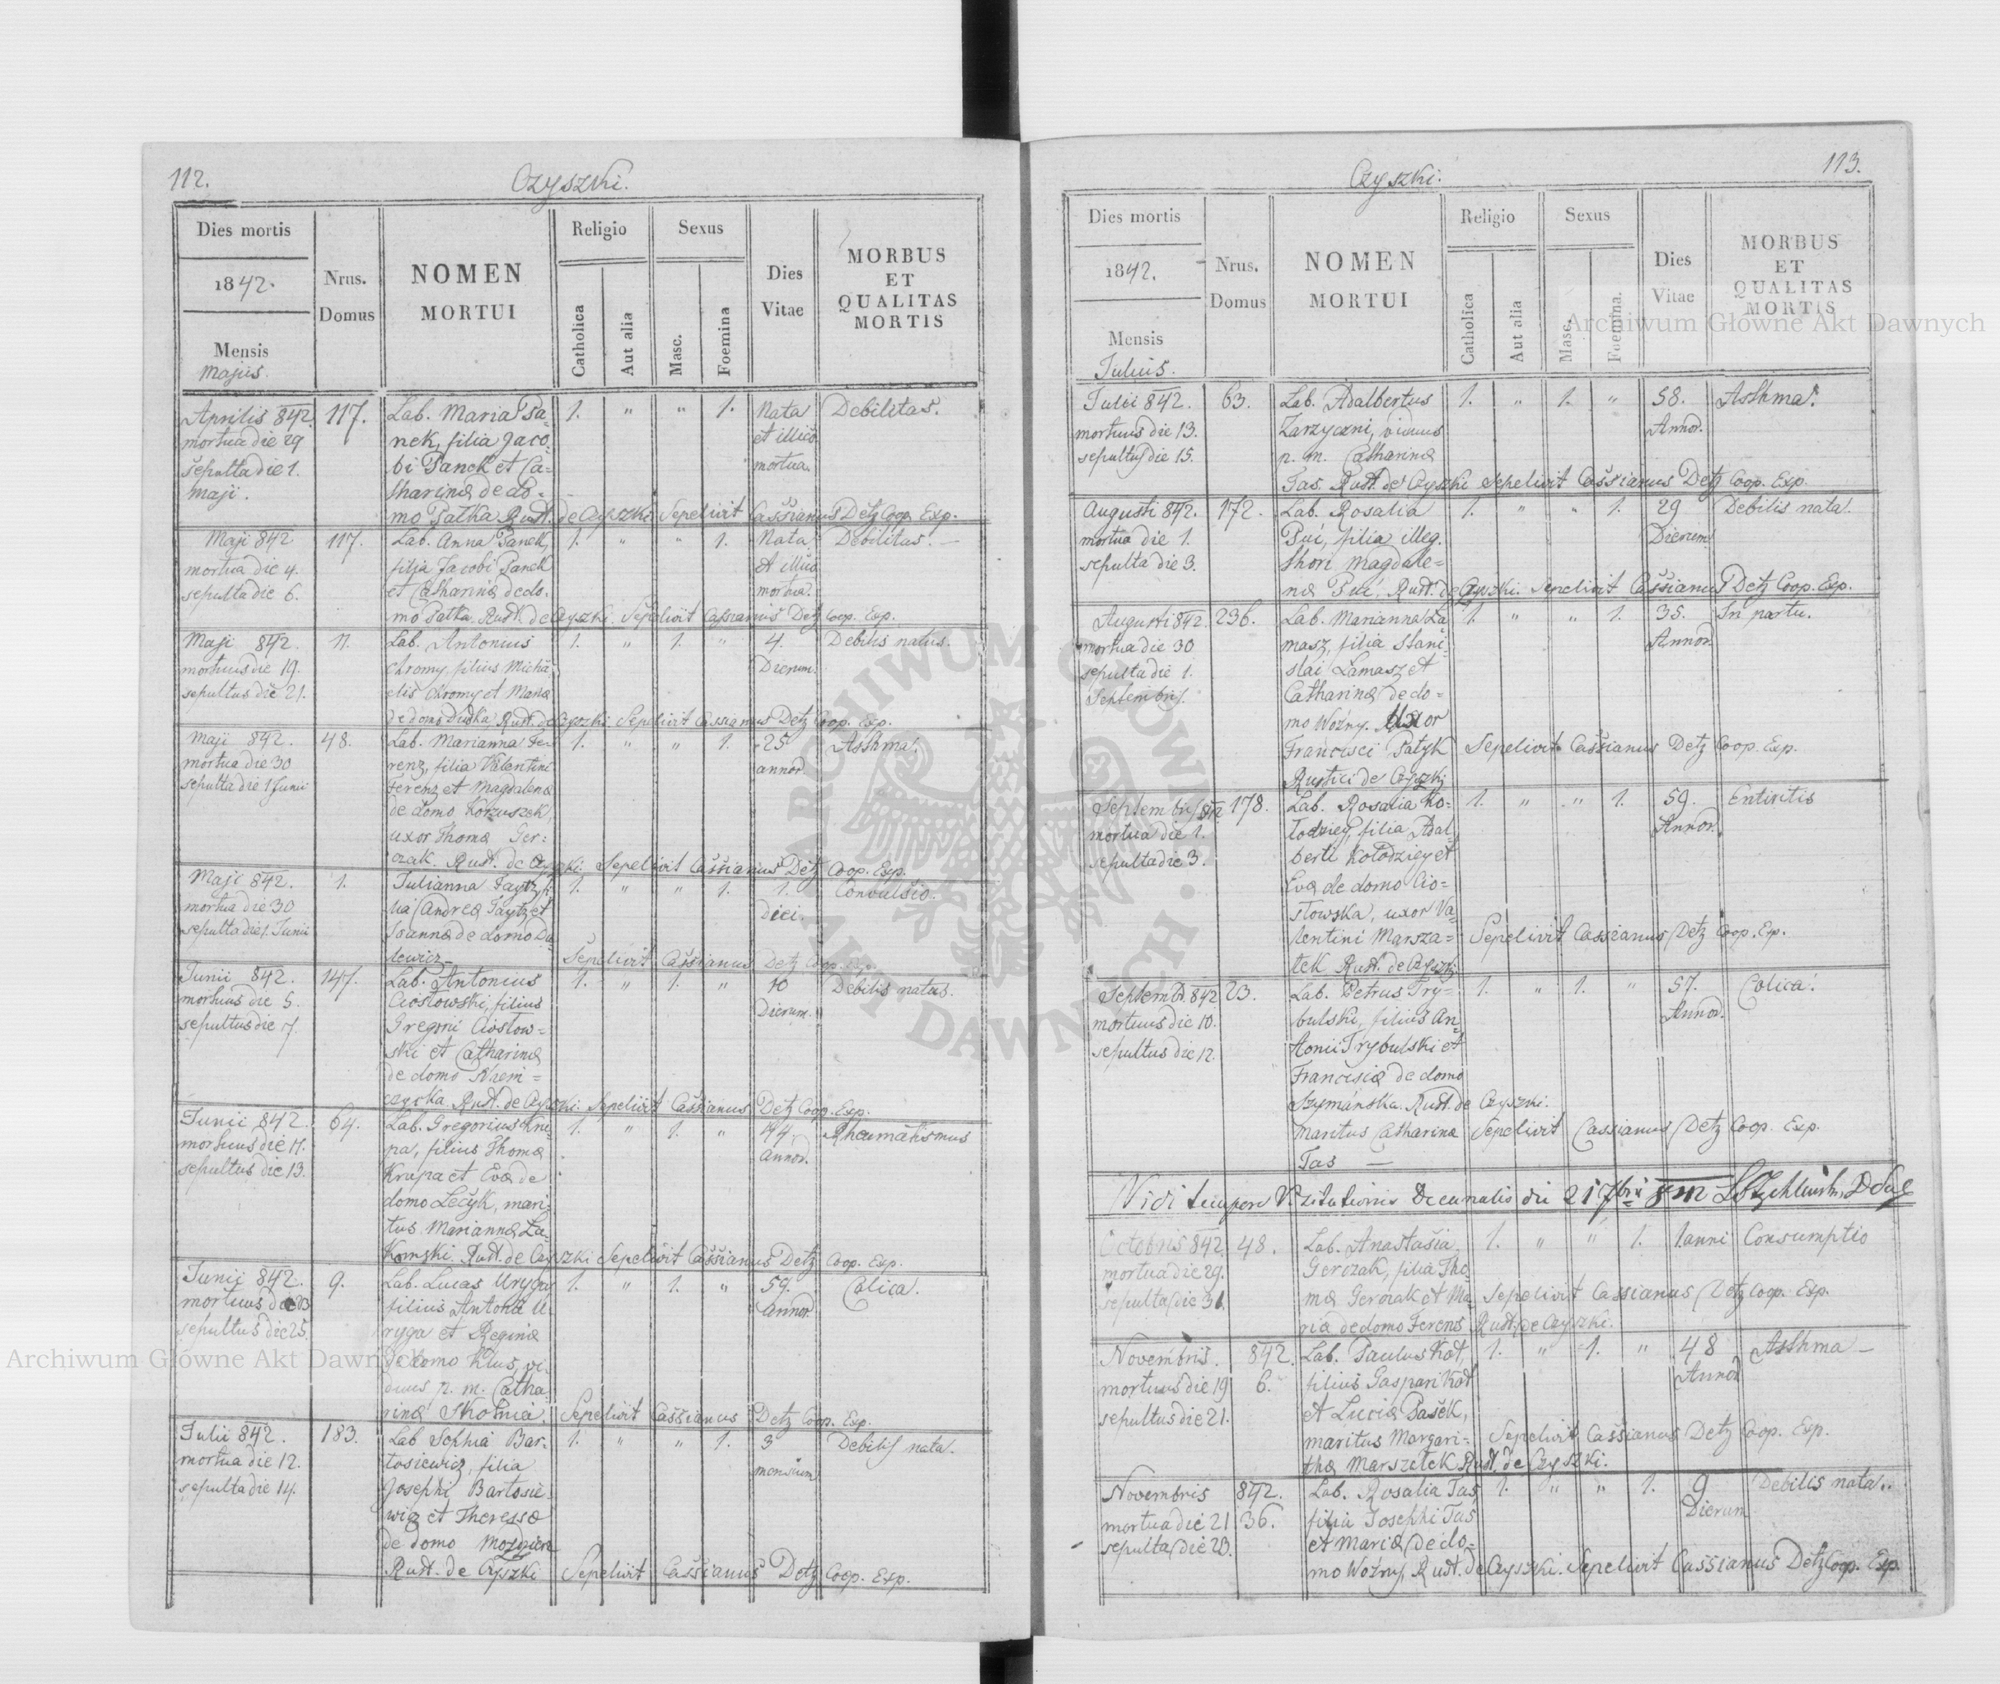 112.
Czyszki.
Dies mortis
1842.
Mensis
Majus.
Nrus.
Domus
NOMEN
MORTUI
Religio
Catholica
Aut alia
Sexus
Masc.
Foemina
Dies
Vitae
MORBUS
ET
QUALITAS
MORTIS
Aprilis 842. 117. Lab. Maria Pa- 1. " " 1. Nata Debilitas.
mortua die 29 nek, filia Jaco- et illico
sepulta die 1. bi Panek et Ca- mortua.
Maji. tharinæ de do-
mo Patka Rust. de Czyszki Sepelivit Cassianus Detz Coop. Exp.
Maji 842 117. Lab. Anna Panek, 1. " " 1. Nata Debilitas. —
mortua die 4. filia Jacobi Panek et illico
sepulta die 6. et Catharinæ de do- mortua.
mo Patka. Rust. de Czyszki. Sepelivit Cassianus Detz Coop. Exp.
Maji 842. 11. Lab. Antonius 1. " 1. " 4. Debilis natus.
mortuus die 19. Chromy, filius Micha- Dierum.
sepultus die 21. elis Chromy et Mariæ
de domo Dudka Rust. de Czyszki. Sepelivit Cassianus Detz Coop. Exp.
Maji 842. 48. Lab. Marianna Fe- 1. " " 1. 25 Asthma.
mortua die 30 renz, filia Valentini annor.
sepulta die 1 Junii Ferenz et Magdalenæ
de domo Korzuszek,
uxor Thomæ Ger-
czak. Rust. de Czyszki. Sepelivit Cassianus Detz Coop. Exp.
Maji 842. 1. Julianna Taytz fi- 1. " " 1. 1. Convulsio.
mortua die 30 lia Andreæ Taytz et diei.
sepulta die 1. Junii Joannæ de domo Da-
lewicz — Sepelivit Cassianus Detz Coop. Exp.
Junii 842. 147. Lab. Antonius 1. " 1. " 10 Debilis natus.
mortuus die 5. Ciostowski, filius Dierum.
sepultus die 7. Gregorii Ciostow-
ski et Catharinæ
de domo Niem-
czycka Rust. de Czyszki. Sepelivit Cassianus Detz Coop. Exp.
Junii 842. 64. Lab. Gregorius Kru- 1. " 1. " 44 Rheumatismus
mortuus die 11. pa, filius Thomæ annor.
sepultus die 13. Krupa et Evæ de
domo Leczyk, mari-
tus Mariannæ La-
komski. Rust. de Czyszki Sepelivit Cassianus Detz Coop. Exp.
Junii 842. 9. Lab. Lucas Uryga 1. " 1. " 59. Colica.
mortuus die 23 filius Antonii U- annor.
sepultus die 25. ryga et Reginæ
de domo Klus, vi-
duus p. m. Catha-
rinæ Skolnia. Sepelivit Cassianus Detz Coop. Exp.
Julii 842. 183. Lab. Sophia Bar- 1. " " 1. 3 Debilis nata.
mortua die 12. tosiewicz, filia mensium
sepulta die 14. Josephi Bartosie-
wicz et Theressæ
de domo
Rust. de Czyszki Sepelivit Cassianus Detz Coop. Exp.
113.
Czyszki.
Dies mortis
1842.
Mensis
Julius.
Nrus.
Domus
NOMEN
MORTUI
Religio
Catholica
Aut alia
Sexus
Masc.
Foemina.
Dies
Vitae
MORBUS
ET
QUALITAS
MORTIS
Julii 842. 63. Lab. Adalbertus 1. " 1. " 58. Asthma.
mortuus die 13. Zarzyczni, viduus Annor.
sepultus die 15. p. m. Catharinæ
Tas Rust. de Czyszki Sepelivit Cassianus Detz Coop. Exp.
Augusti 842. 172. Lab. Rosalia 1. " " 1. 29 Debilis nata.
mortua die 1. Pui, filia illeg. Dierum
sepulta die 3. thori Magdale-
næ Pui. Rust. de Czyszki. Sepelivit Cassianus Detz Coop. Exp.
Augusti 842. 236. Lab. Marianna La- 1. " " 1. 35. In partu.
mortua die 30 masz, filia Stani- Annor.
sepulta die 1. slai Lamasz et
Septembris. Catharinæ de do-
mo Woźny. Uxor
Francisci Patyk Sepelivit Cassianus Detz Coop. Exp.
Rustici de Czyszki
Septembris 842 178. Lab. Rosalia Ko- 1. " " 1. 59. Entiritis
mortua die 1. łodziey, filia Adal- Annor.
sepulta die 3. berti Kołodziey et
Evæ de domo Cio-
stowska, uxor Va-
lentini Marsza- Sepelivit Cassianus Detz Coop. Exp.
łek Rust. de Czyszki
Septemb. 842 23. Lab. Petrus Try- 1. " 1. " 57. Colica.
mortuus die 10. bulski, filius An- Annor.
sepultus die 12. tonii Trybulski et
Franciscæ de domo
Szymańska. Rust. de Czyszki.
Maritus Catharinæ Sepelivit Cassianus Detz Coop. Exp.
Tas —
Vidi tempore Visitationis Decanalis die 21 7bris 842
Octobris 842. 48. Lab. Anastasia 1. " " 1. 1. anni Consumptio
mortua die 29. Gerczak, filia Tho-
sepulta die 31. mæ Gerczak et Ma- Sepelivit Cassianus Detz Coop. Exp.
riæ de domo Ferens Rust. de Czyszki.
Novembris. 842. Lab. Paulus Kot, 1. " 1. " 48 Asthma —
mortuus die 19 6. filius Gaspari Kot Annor
sepultus die 21. et Luciæ Pasek,
maritus Margari- Sepelivit Cassianus Detz Coop. Exp.
thæ Marszełek Rust. de Czyszki.
Novembris 842. Lab. Rosalia Tas, 1. " " 1. 9 Debilis nata..
mortua die 21 36. filia Josephi Tas Dierum
sepulta die 23. et Mariæ de do-
mo Woźny, Rust. de Czyszki. Sepelivit Cassianus Detz Coop. Exp
Archiwum Główne Akt Dawnych
Archiwum Główne Akt Dawnych
ARCHIWUM GŁÓWNE AKT DAWNYCH